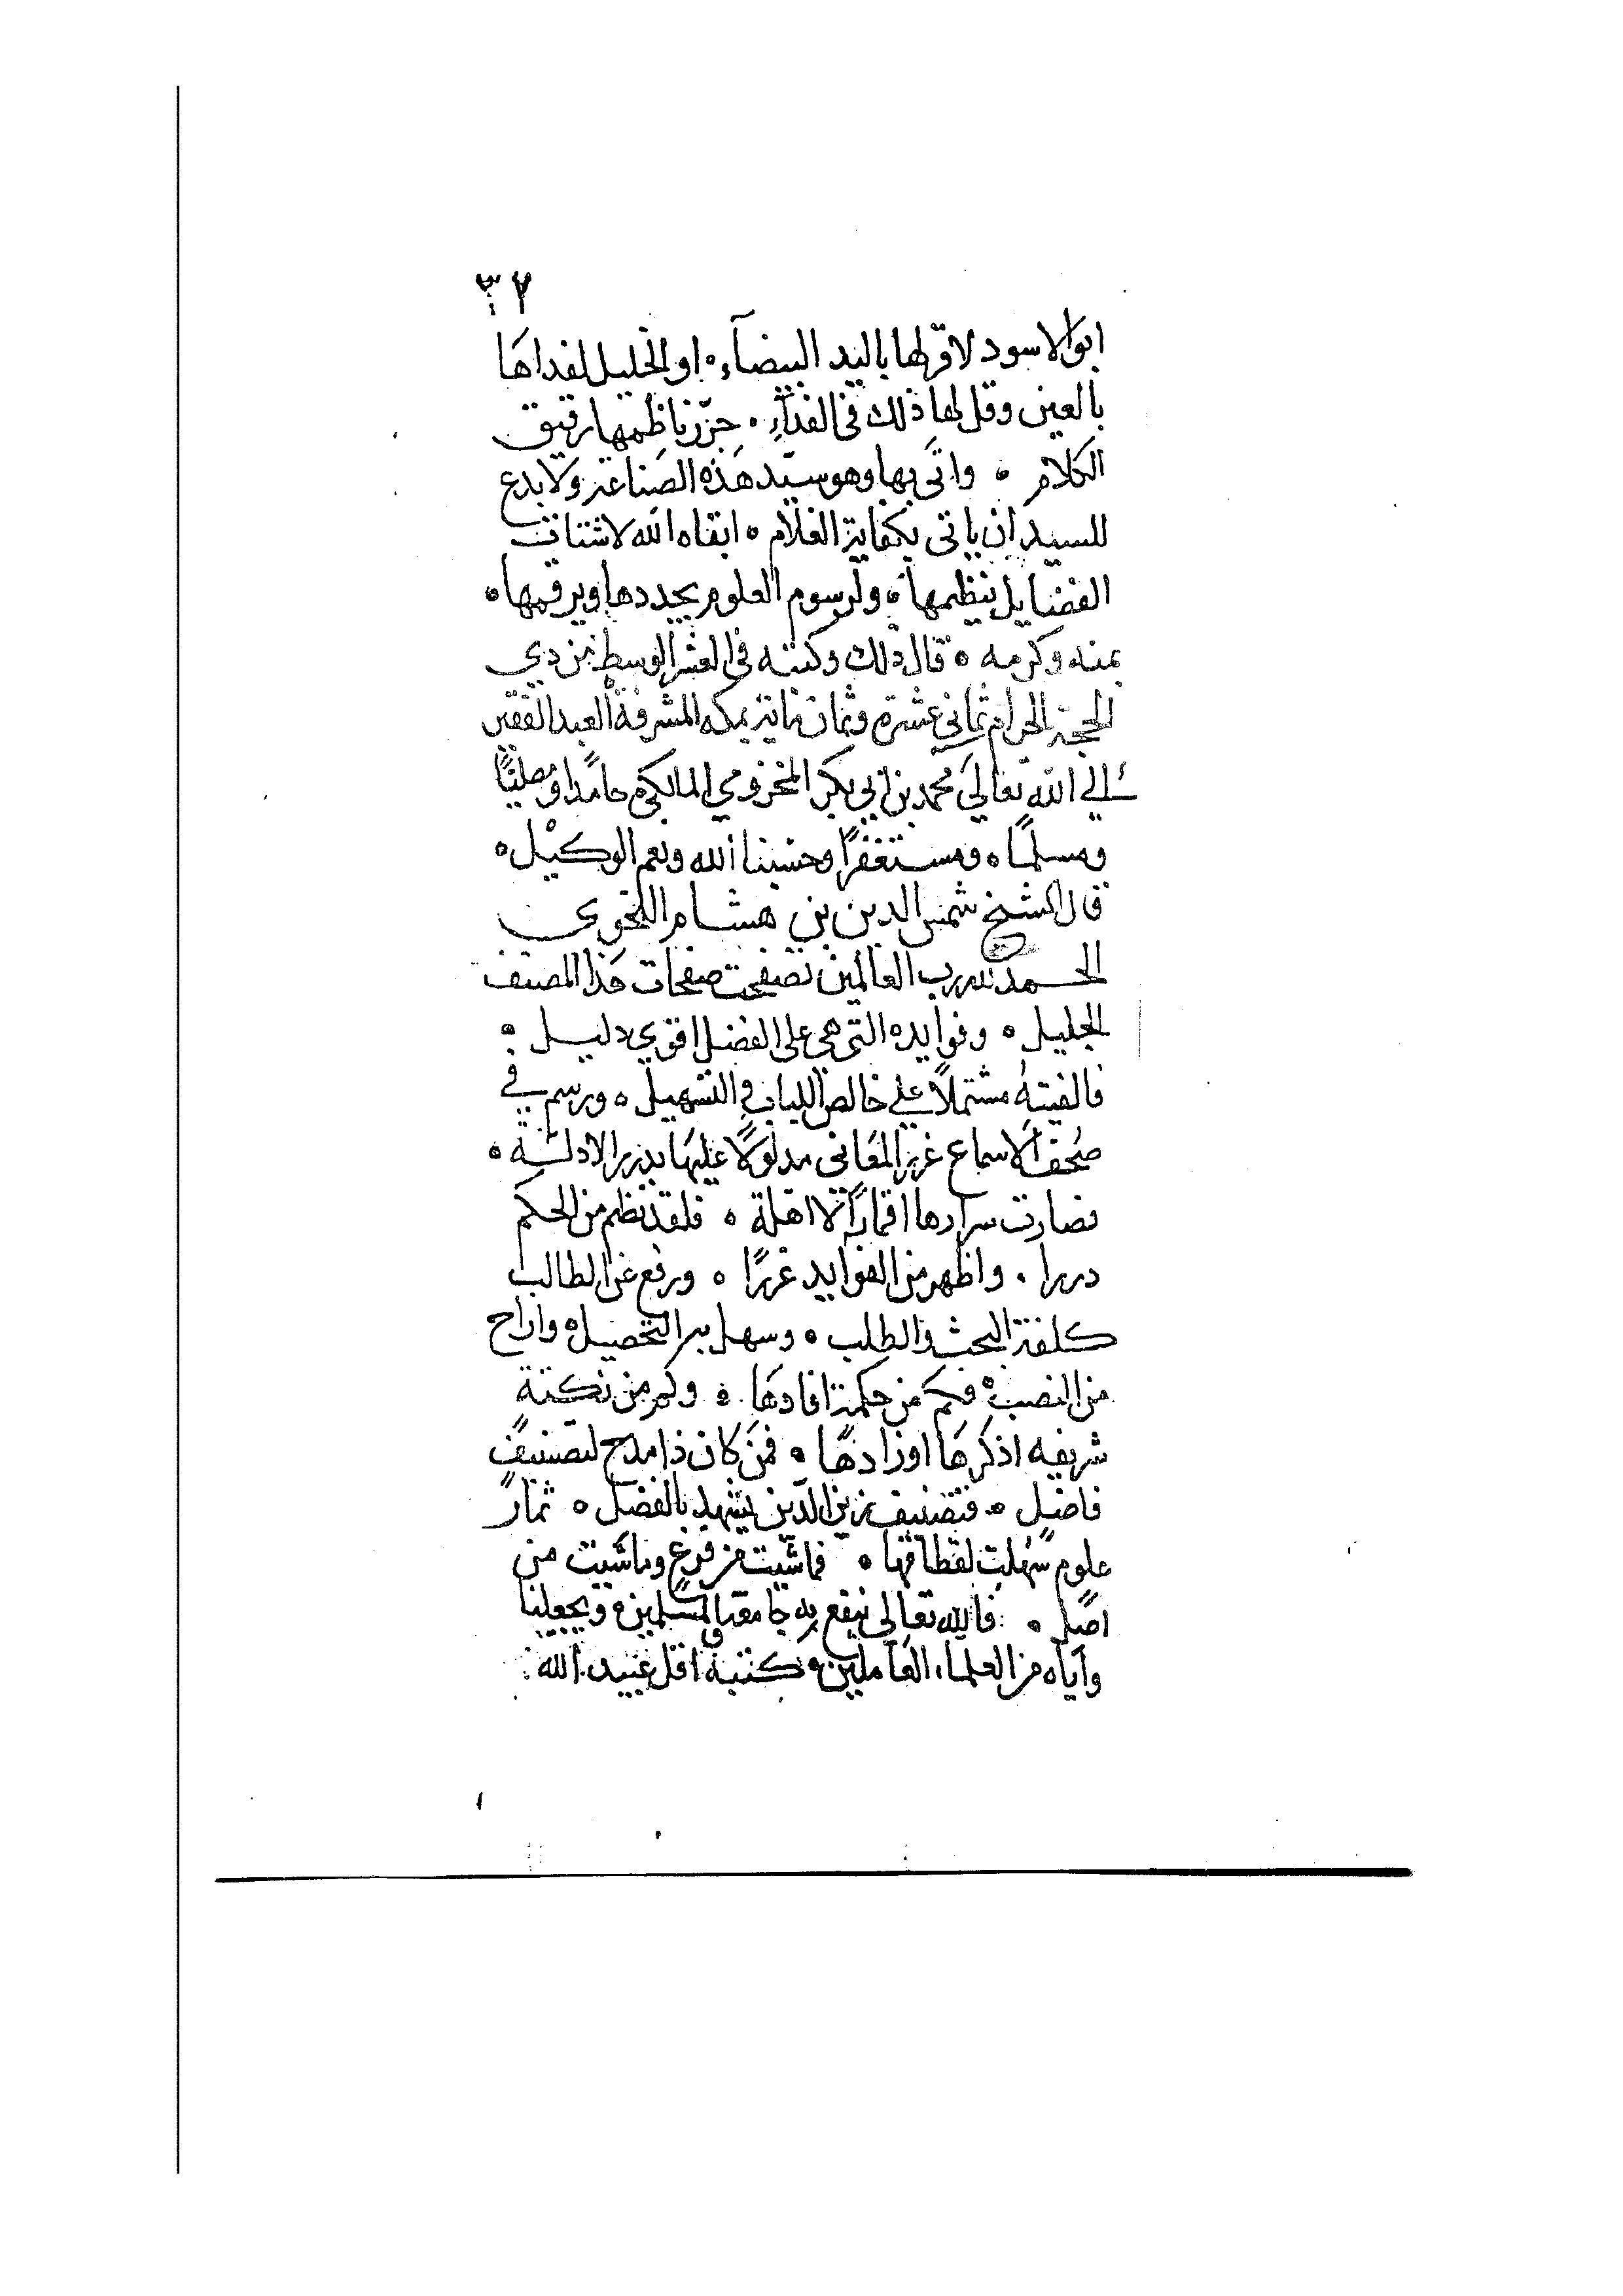 ٣٧
ابوالاسود لاقر لها باليد البيضآء ه او الخليل لفداها
بالعين وقل لها ذلك فى الفدآءِ ه حرّر ناظمها رقيق
الكلام ه واتَى بها وهو سيّد هَذه الصّناعة ولا بدع
للسيد ان ياتى بكفاية الغلام ه ابقاه الله لاشتات
الفضايل ينظمها ه ولرسوم العلوم يجددها ويرقمها ه
بمنه وكرمه ه قال ذلك وكتبه فى العشر الوسط من ذي
الحجة الحرام ثمانى عشرة وثمان ماية بمكه المشرفة العبد الفقير
الي الله تعالي محمد بن ابي بكر المخزومي المالكي حامدًا ومصليًا
ومسلمًا ه ومستغفرًا وحسبنا الله ونعم الوكيل ه
قال الشيخ شمس الدين بن هشام النحوي
الحمد لله رب العالمين تصفحت صفحات هذا المصنف
الجليل ه وفوايده التى هى على الفضل اقوي دليل ه
فالفيتهُ مشتملاً علي خالص اللباب فى التسهيل ه ورسم في
صُحف الاسماع غرر المعَانى مدلولاً عليهَا بدرر الادلـة ه
فصارت سرارها اقمارًا لا اهلة ه فلقد نظم من الحكم
دررا ه واظهر من الفوايد غررًا ه ورفع عن الطالب
كلفة البحث والطلب ه وسهل سبر التحصيل ه واراح
من النصب ه فكم من حكمة افادهَا ه وكم من نكتة
شريفه اذكرهَا او زادهَا ه فمَن كان ذا مدح لتصنيفٍ
فاضل ه فتصنيف زين الدّين يشهد بالفضل ه ثمارُ
علوم سَهُلت لقطافها ه فما شيت من فرعٍ وما شيت من
اصلِ ه فالله تعالى ينفع به جامعه المسلمين ه ويجعلنا
واياه من العلماء العَاملين ه وكتبه اقل عبيد الله